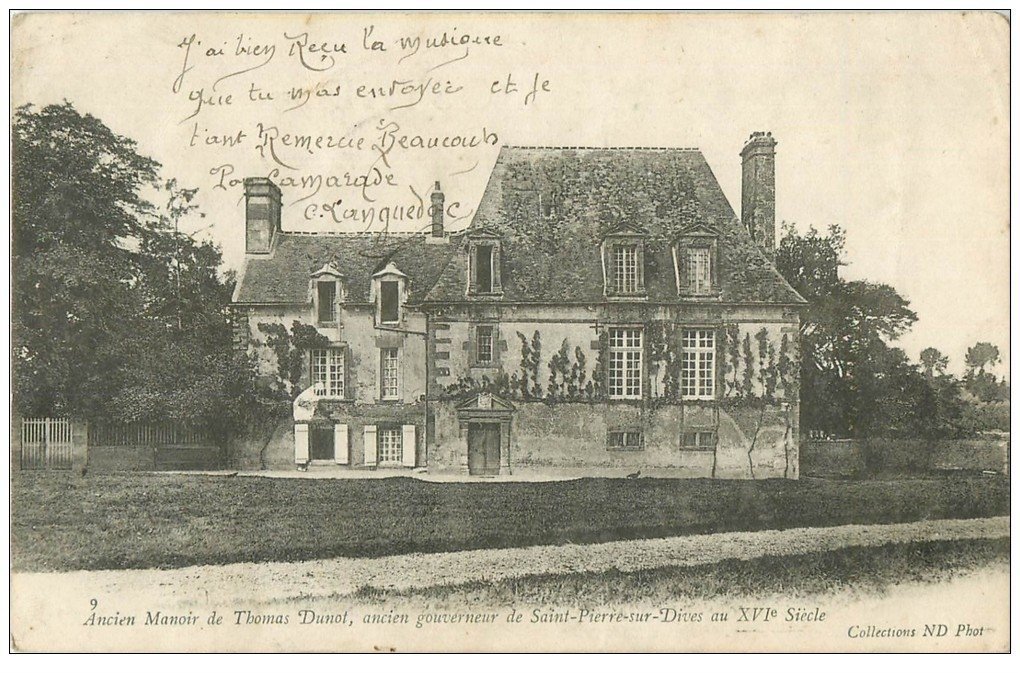 J'ai bien Reçu la musique
que tu m'as envoyer et je
t'ant Remercie Beaucoub
Camarade
C. Languedoc
9
Ancien Manoir de Thomas Dunot, ancien gouverneur de Saint-Pierre-sur-Dives au XVIe Siècle
Collections ND Phot